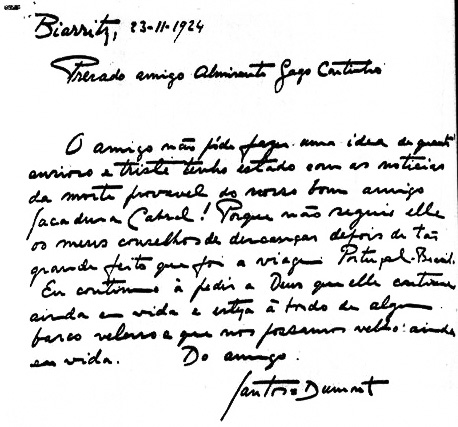 Biarritz, 23-11-1924
Prezado amigo Almirante Gago Coutinho
O amigo não póde fazer uma idea de quanto
ancioso e triste tenho estado com as noticias
da morte provavel do nosso bom amigo
Sacadura Cabral! Porque não seguiu elle
os meus conselhos de descançar depois de tão
grande feito que foi a viagem Portugal-Brasil.
Eu continuo à pedir a Deus que elle continue
ainda em vida e esteja à bordo de algum
barco veleiro e que nos possamos vel-o ainda
em vida. Do amigo
Santos=Dumont